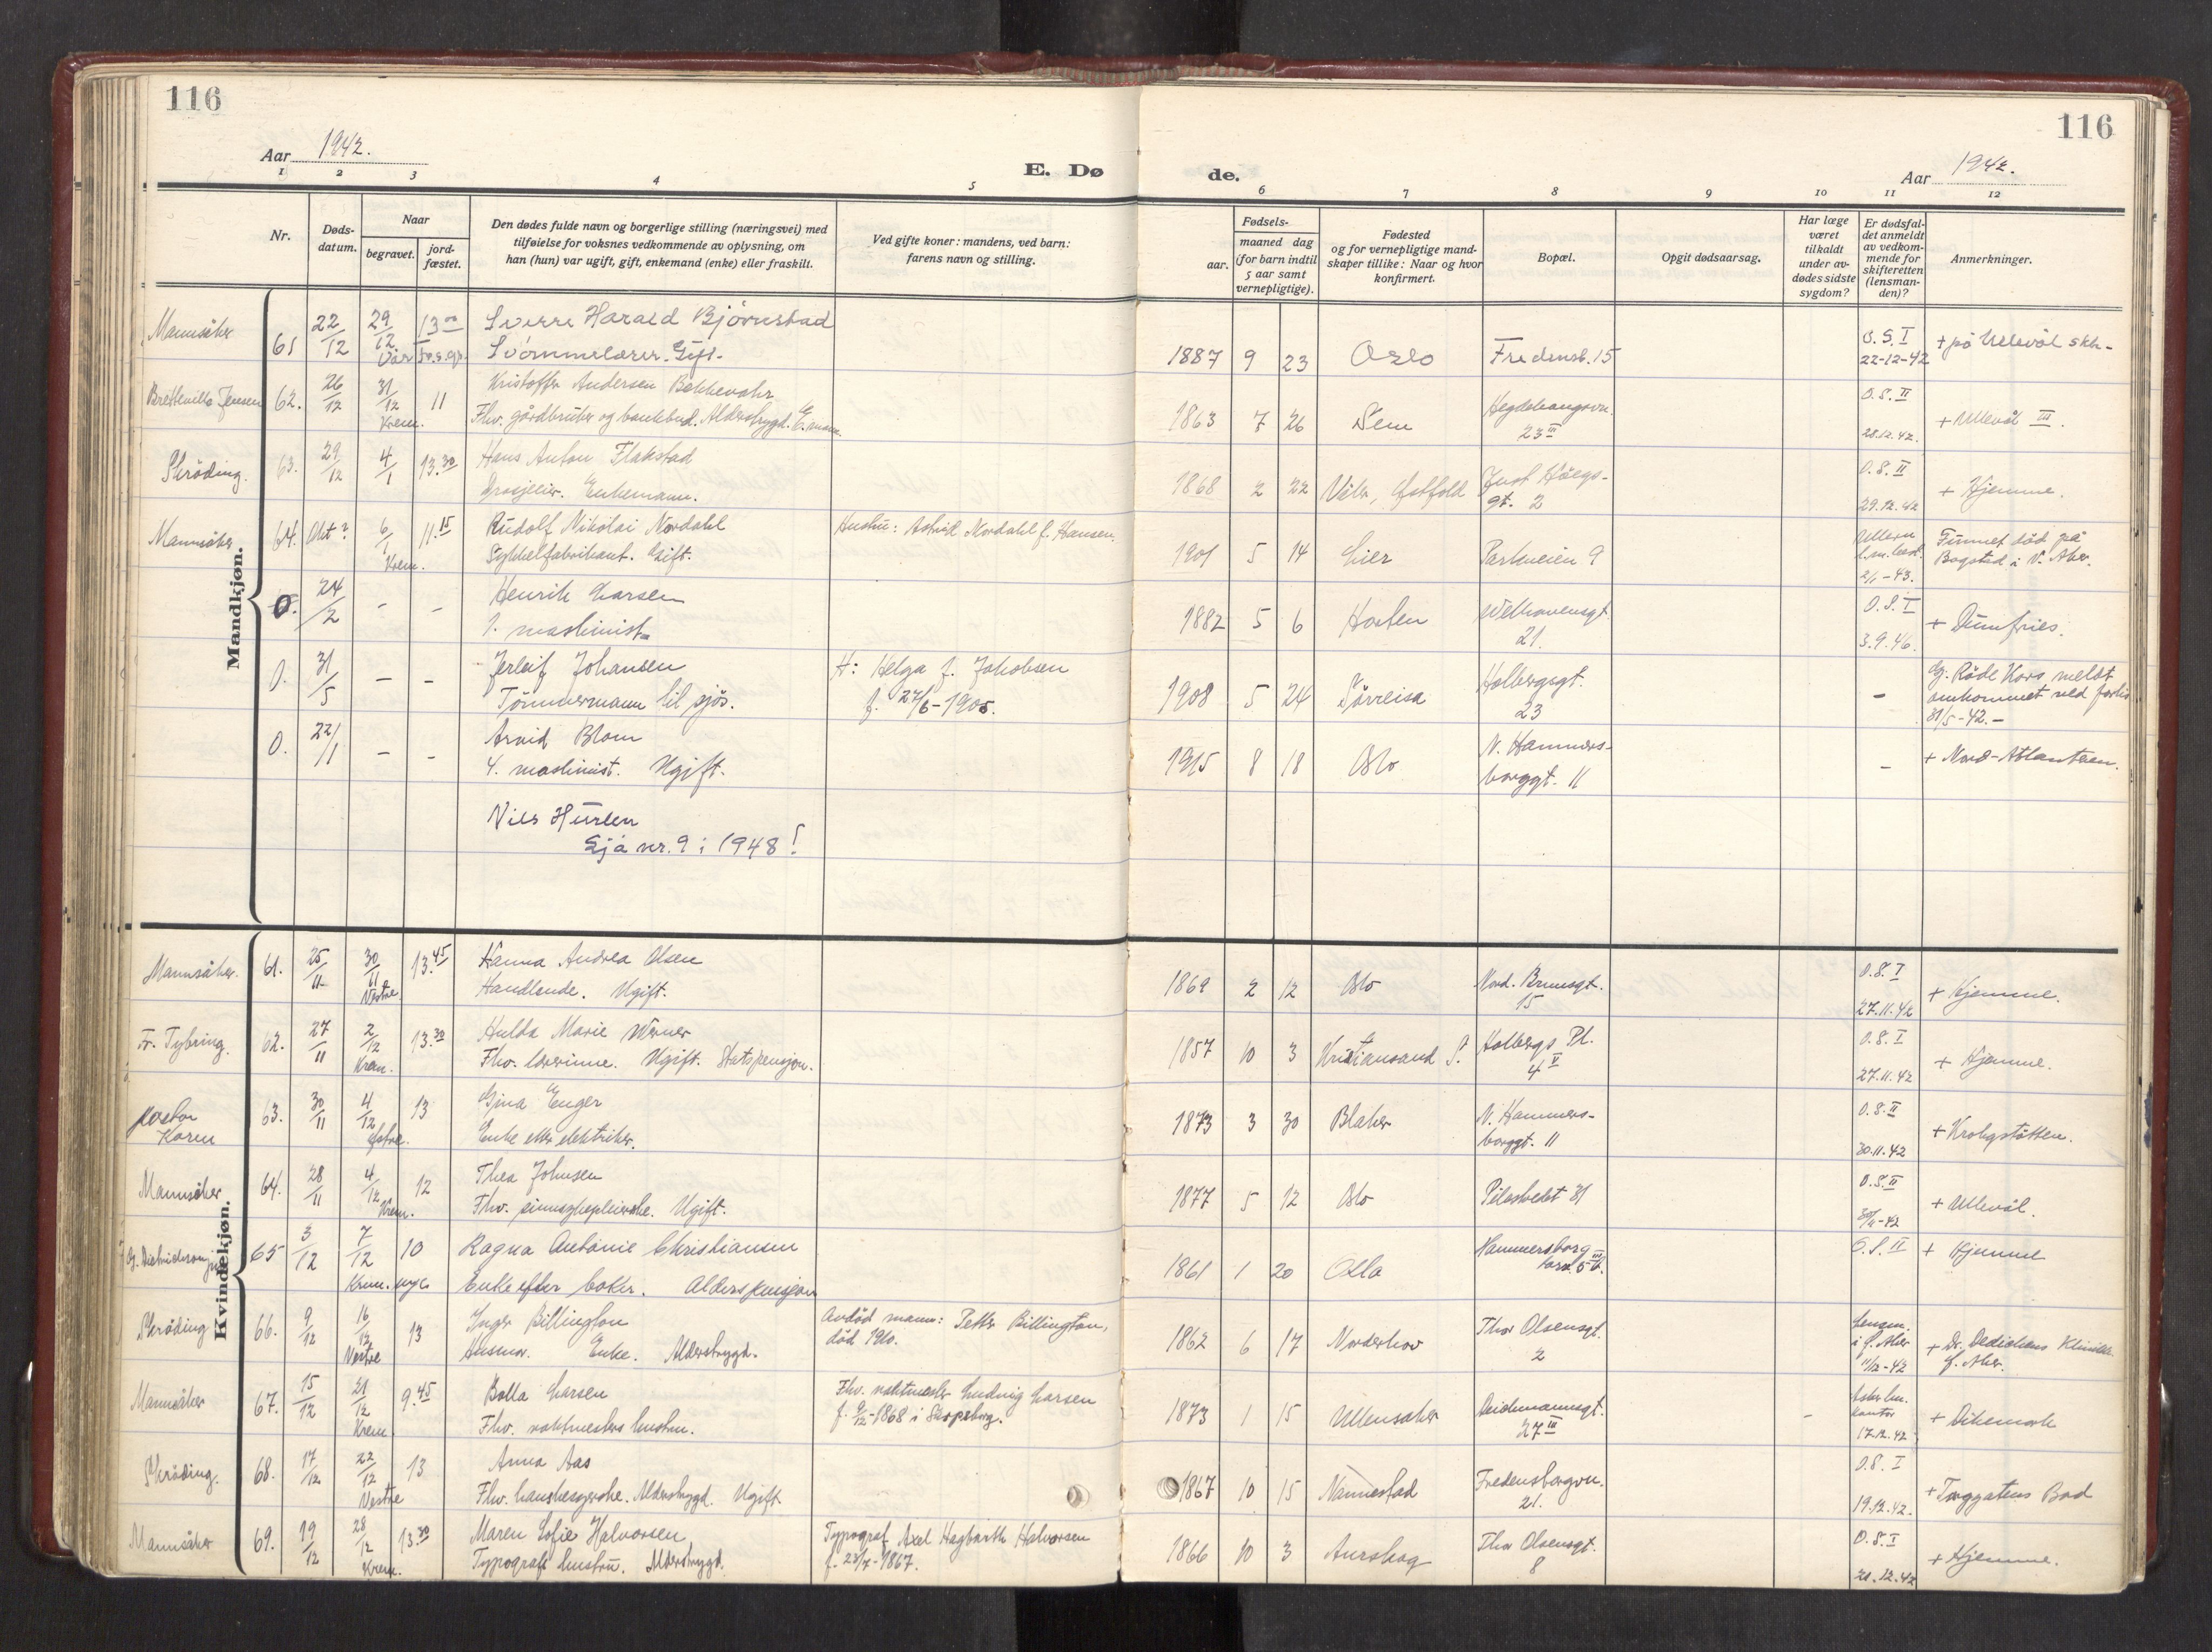 116
116
Aar 1942.
E. Dø
de.
Aar 1942.
1 2 3 4 5 6 7 8 9 10 11 12
Nr.
Døds-
datum.
Naar
begravet.
jord-
fæstet.
Den dødes fulde navn og borgerlige stilling (næringsvei) med
tilføielse for voksnes vedkommende av oplysning, om
han (hun) var ugift, gift, enkemand (enke) eller fraskilt.
Ved gifte koner: mandens, ved barn:
farens navn og stilling.
Fødsels-
aar.
maaned dag
(for barn indtil
5 aar samt
vernepligtige).
Fødested
og for vernepligtige mand-
skaper tillike: Naar og hvor
konfirmert.
Bopæl.
Opgit dødsaarsag.
Har læge
været
tilkaldt
under av-
dødes sidste
sygdom?
Er dødsfal-
det anmeldt
av vedkom-
mende for
skifteretten
(lensman-
den)?
Anmerkninger.
Mandkjøn.
Mannsåker 61 22/12 29/12 13 Sverre Harald Bjørnstad 1887 9 23 Oslo Fredensb. 15 O.S. I + på Ullevål skh-
Vår Fr.s.gr. Svømmelærer. Gift. 22-12-42
Bretteville Jensen 62. 26/12 31/12 11 Kristoffer Andersen Bekkevahr 1863 7 26 Sem Hegdehaugsvn. O.S. II + Ullevål III.
Krem. Fhv. gårdbruker og bankbud. Alderstrygd. E.mann 23 III 28.12.42.
Skrøding. 63. 29/12 4/1 13.30 Hans Anton Flakstad 1868 2 22 Våler, Østfold Just Høegs- O.S. II + Hjemme.
Grosjerer. Enkemann. gt. 2 29.12.42
Mannsåker 64. Okt? 6/1 11.15 Rudolf Nikolai Nordahl Hustru: Astrid Nordahl f. Hansen. 1901 5 14 Lier Parkveien 9 Ullern Funnet død på
Krem. Sykkelfabrikant. Gift. 2/1-43. Bogstad i V. Aker.
0. 24/2 - - Henrik Larsen 1882 5 6 Horten Welhavensgt. O.S. I + Dumfries.
1. maskinist 21. 3.9.46.
0. 31/5 - - Jerleif Johansen H: Helga f. Jakobsen 1908 5 24 Sørreisa Holbergsgt. - Røde Kors meldt
Tømmermann til sjøs. f. 27/6-1905. 23 omkommet ved forlis
31/5-42.-
0. 22/1 - - Arvid Blom 1915 8 18 Oslo N. Hammers- - + Nord-Atlanteren.
4. maskinist. Ugift. borggt. 11
Nils Huslen
Sjå nr. 9 i 1948!
Kvindekjøn.
Mannsåker. 61. 25/11 30/11 13.45 Hanna Andrea Olsen 1869 2 12 Oslo Nord. Brunsgt. O.S. I + Hjemme.
Vestre Handlende. Ugift. 15 27.11.42
Fr. Tybring. 62. 27/11 2/12 13.30 Hulda Marie Werner 1857 10 3 Kristiansand S. Holbergs Pl. O.S. I + Hjemme.
Krem. Fhv. lærerinne. Ugift. Statspensjon. 4 V 27.11.42
pastor Koren 63. 30/11 4/12 13 Gina Enger 1873 3 30 Blaker N. Hammers- O.S. II + Krohgstøtten.
Østre. Enke etter elektriker. borggt. 11 30.11.42
Mannsåker 64. 28/11 4/12 12 Thea Johnsen 1877 5 12 Oslo Pilestredet 31 O.S. II + Ullevål.
Krem. Fhv. sinnssykepleierske. Ugift. 30/11-42
65 3/12 7/12 10 Ragna Antonie Christiansen 1861 1 20 Oslo Hammersborg O.S. II + Hjemme
Krem. nye Enke efter baker. Alderspensjon torv. 5
Skrøding 66. 9/12 16/12 13 Inger Billington Avdød mann: Petter Billington, 1862 6 17 Norderhov Thor Olsensgt. Lensm. + Dr. Dedichens Klinikk
Vestre Husmor. Enke. Alderstrygd. død 1910. 2 i Ø. Aker 11/12-42 Ø. Aker.
Mannsåker 67. 15/12 21/12 9.45 Bolla Larsen Fhv. vaktmester Ludvig Larsen 1873 1 15 Ullensaker Deichmannsgt. - Asker + Dikemark
Krem. Fhv. vaktmesters hustru. f. 9/12-1868 i Sarpsborg. 27 III kontor 17.12.42
Skrøding. 68. 17/12 22/12 13 Anna Aas 1867 10 15 Nannestad Fredensborgvn. O.S. I + Torggatens Bad
Vestre Fhv. hanskesyerske. Alderstrygd. Ugift 21. 19.12.42.
Mannsåker 69. 19/12 28/12 13.30 Maren Sofie Halvorsen Typograf Axel Hagbarth Halvorsen 1866 10 3 Aurskog Thor Olsensgt. O.S. I + Hjemme.
Krem. Typografs hustru. Alderstrygd. f. 23/7-1867. 8 21.12.42